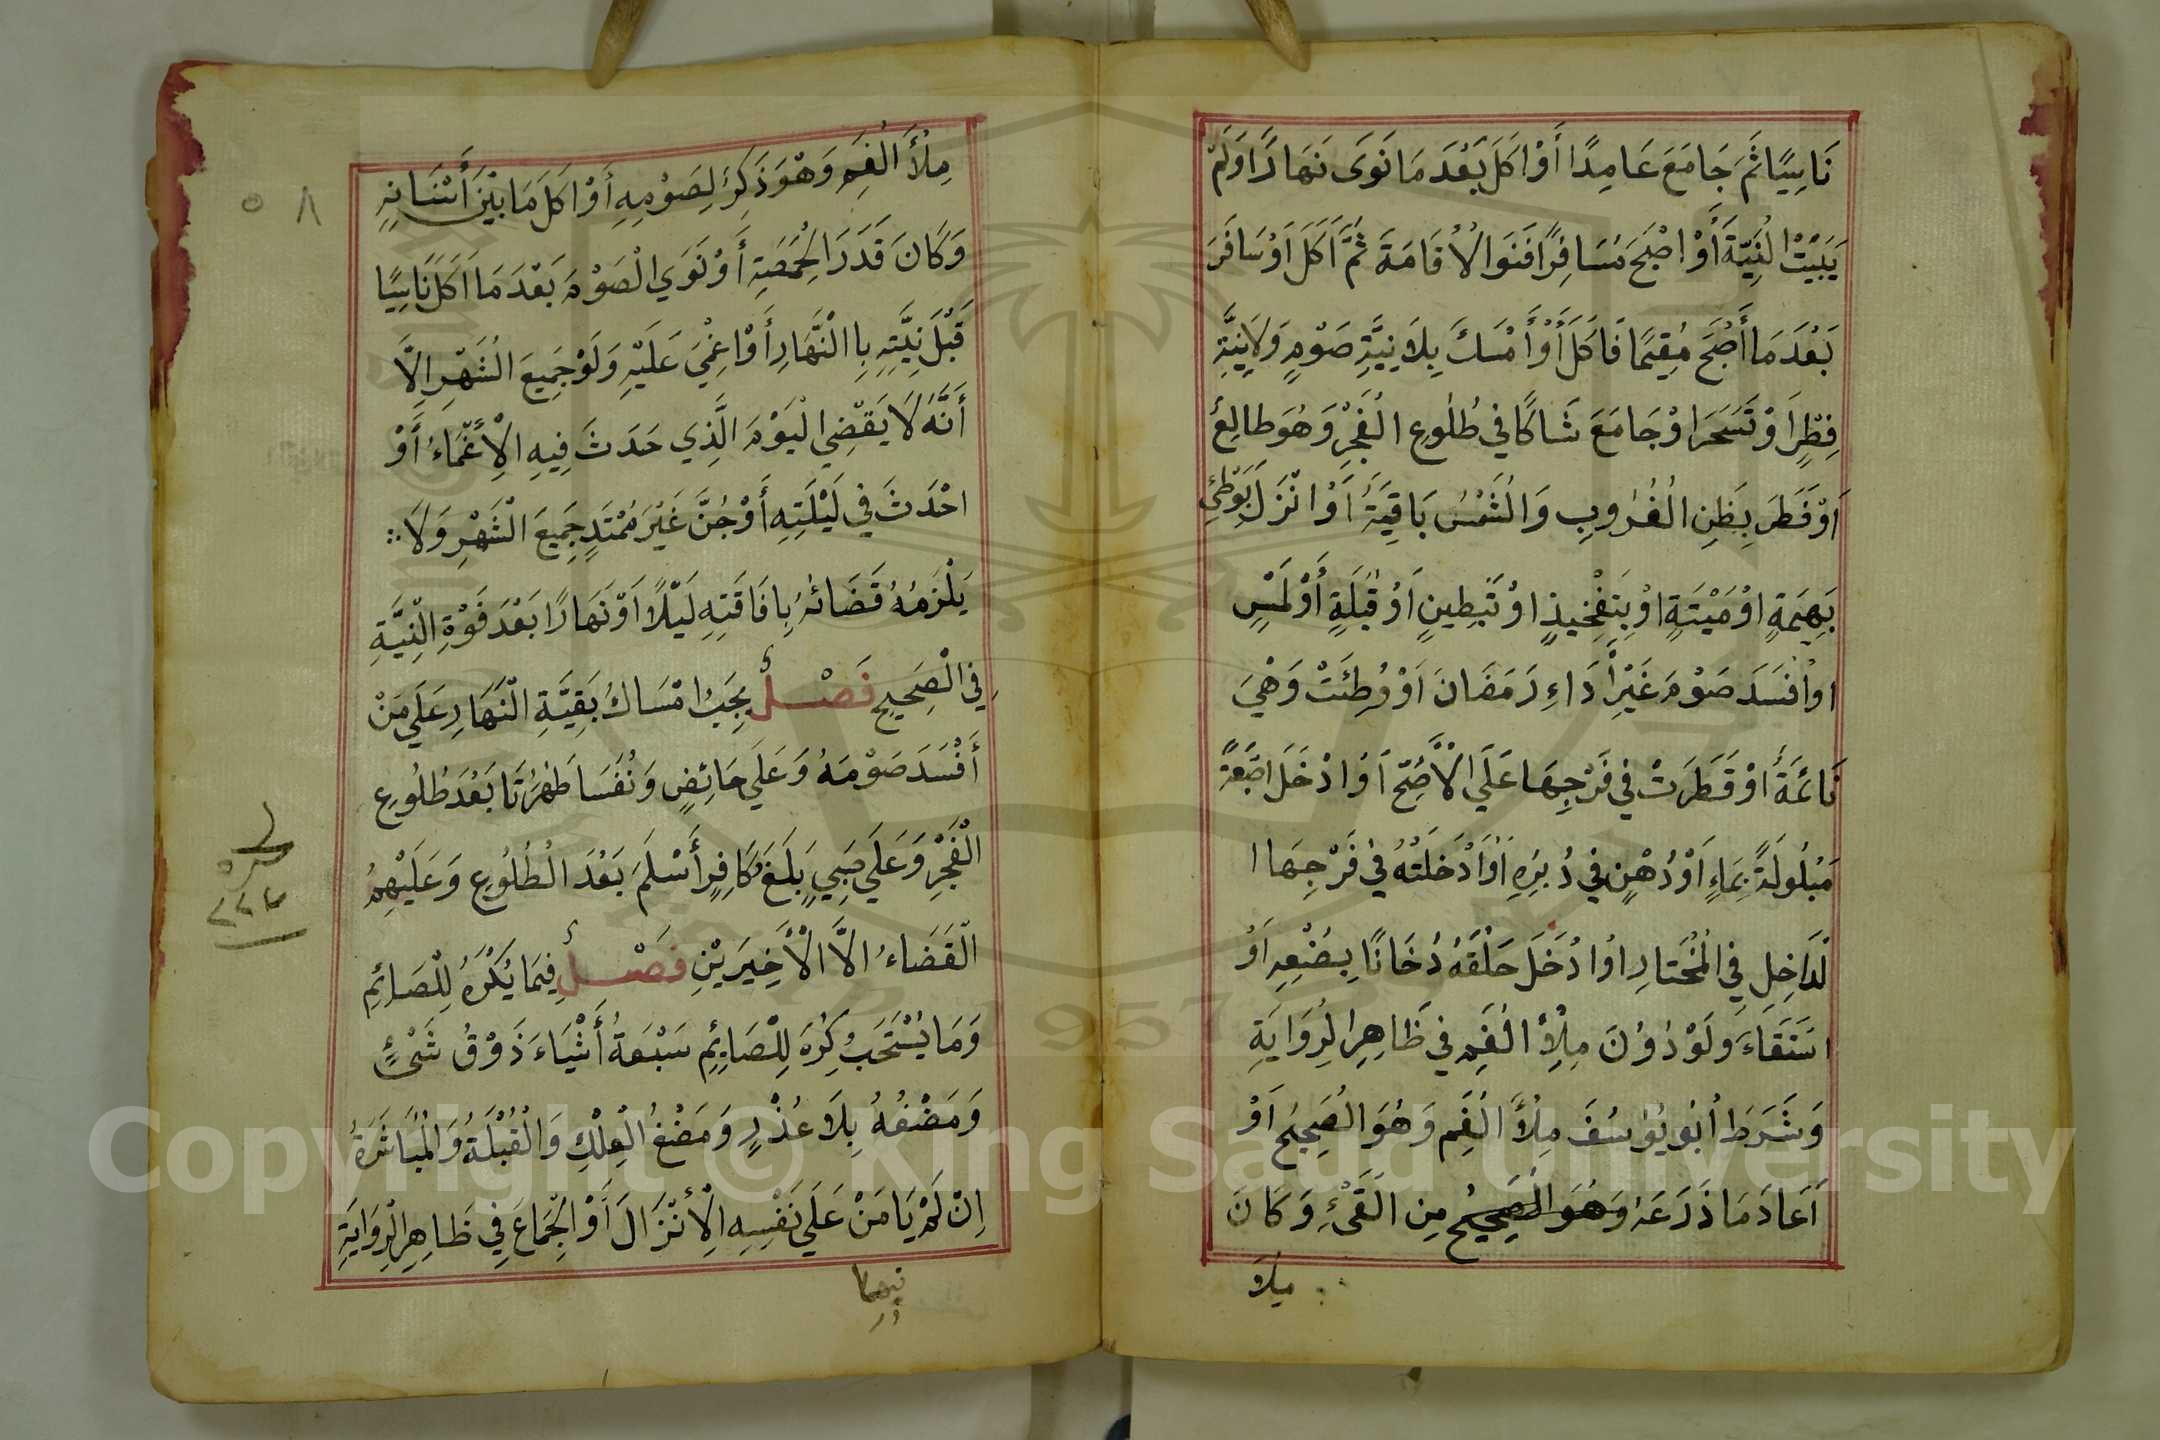 نَاسِيًا ثُمَّ جَامَعَ عَامِدًا أَوْ اكَلَ بَعْدَ مَا نَوَى نَهَارًا وَلَمْ
يَبَيْتْ النِّيَّةَ أَوْ اصْبَحَ مُسَافِرًا فَنَوَالْاُقَامَةَ ثُمَّ اَكَلَ اَوْ سَافَرَ
بَعْدَ مَا أَصْبَحَ مُقِيمًا فَاكَلَ أَوْ أَمْسَكَ بِلَا نِيَّةِ صَوْمٍ وَلَا نِيَّةِ
فِطْرٍ اَوْ تَسَحَّرَ اوْ جَامَعَ شَاكًا في طُلُوعِ الْفَجْرِ وَهُوَ طالِعٌ
اَوْ فَطَرَ بِظَنِ الْغُرُوبِ وَالْشَمْسُ بَاقِيَةٌ اَوْ انْزَلَ بَوَطْئِ
بَهِيمَةٍ اوْ مَيْتَةٍ اوْ بِتَفْخِيذٍ اوْ تَبْطِينٍ اَوْ قُبْلَةٍ أَوْ لَمْسٍ
اوْ افْسَدَ صَوْمَ غَيْرَ أَدَاءِ رَمَضَانَ اَوْ وُطِئَتْ وَهْيَ
نَائمَةٌ اوْ قَطَرَتْ في فَرْجِهَا عَلَى الْأَصَحِّ اَوْ ادْخَلَ اصْبَعَهُ
مَبْلُولَةً بِمَاءٍ اَوْ دُهْنٍ في دُبُرِهِ اَوْ اَدْخَلَتْهُ في فَرْجِهَا ا
لْدَاخِلِ فِي الْمُخْتارِ اوْ ادْخَلَ حَلْقَهُ دُخَانًا بِصُنْعِهِ اَوْ
اسْتَقَاءَ وَلَوْ دُوْنَ مِلْأِ الْفَمِ في ظَاهِرِ الْرِوَايَةِ
وَشَرَطَ اُبُو يُوْسُفَ مِلْأَ الْفَمِ وَهُوَ الْصَحِيحُ اَوْ
اَعَادَ مَا ذَرَعَهُ وَهُوَ الْصَحِيحُ مِن الْقَيْءِ وَكَانَ
مِلْأَ
٥٨
مِلْأَ الْفَمِ وَهْوَ ذَكِرٌ لِصَوْمِهِ أَوْ اَكَلَ مَا بَيْنَ أَسْنَانِهِ
وَكَانَ قَدَرَ الْحُمَّصَةِ أَوْ نَوَي الْصَوْمَ بَعْدَ مَا اَكَلَ نَاسِيًا
قَبْلَ نِيَّتِهِ بِا الْنَّهَارِ أَوْ اغْمِيَ عَلَيْهِ وَلَوْ جَمِيعَ الْشَهْرِ الَّا
أَنَّهُ لَا يَقْضِي الْيَوْمَ الَّذِي حَدَثَ فِيهِ الْأَغْمَاءُ أَوْ
احْدَثَ في لَيْلَتِهِ أَوْ جُنَّ غَيْرَ مُمْتَدٍ جَمِيعَ الْشَهْرِ وَلَا
يَلْزَمُهُ قَضَائهُ بِافَاقَتِهِ لَيْلًا اَوْ نَهَارًا بَعْدَ فَوْةِ الْنِيَّةِ
فِي الْصَحِيحِ فَصْلٌ يَجِبُ امْسَاكُ بَقِيَّةِ الْنَهَارِ عَلَي مَنْ
أَفْسَدَ صَوْمَهُ وَعَلَي حَائِضٍ وَنُفَسَا طَهُرَتَا بَعْدَ طُلُوعِ
الْفَجْرِ وَعَلَي صَبِيٍ بَلَغَ وَكَافِرٍ أَسْلَمَ بَعْدَ الْطُلُوعِ وَعَلَيْهِمُ
الْقَضَاءُ الَّا الْأَخِيرَيْنِ فَصْلٌ فِيمَا يُكْرَهُ لِلْصَائِمِ
وَمَا يُسْتَحَبُ كُرِهَ لِلْصَايِمِ سَبْعَةُ أَشْيَاءَ ذَوْقُ شَيْءٍ
وَمَضْغُهُ بِلَا عُذْرٍ وَمَضْغُ الْعِلْكِ وَالْقُبْلَةُ وَالْمُبَاشَرَةُ
انْ لَمْ يَامَنْ عَلَي نَفْسِهِ الْأَنْزَالَ أَوْ الْجِمَاعَ فِي ظَاهِرِ الْرِوَايَةِ
Copyright © King Saud University
1957